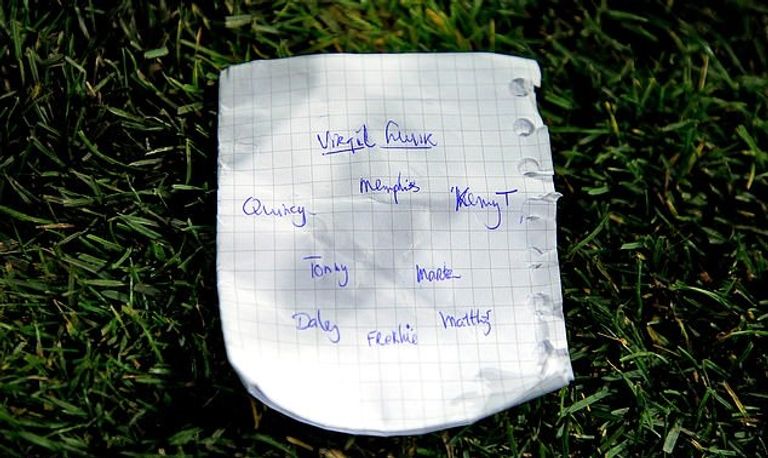 Virgil Luuk
Memphis
Quincy Kenny T
Tonny Marten
Daley Frenkie Matthijs